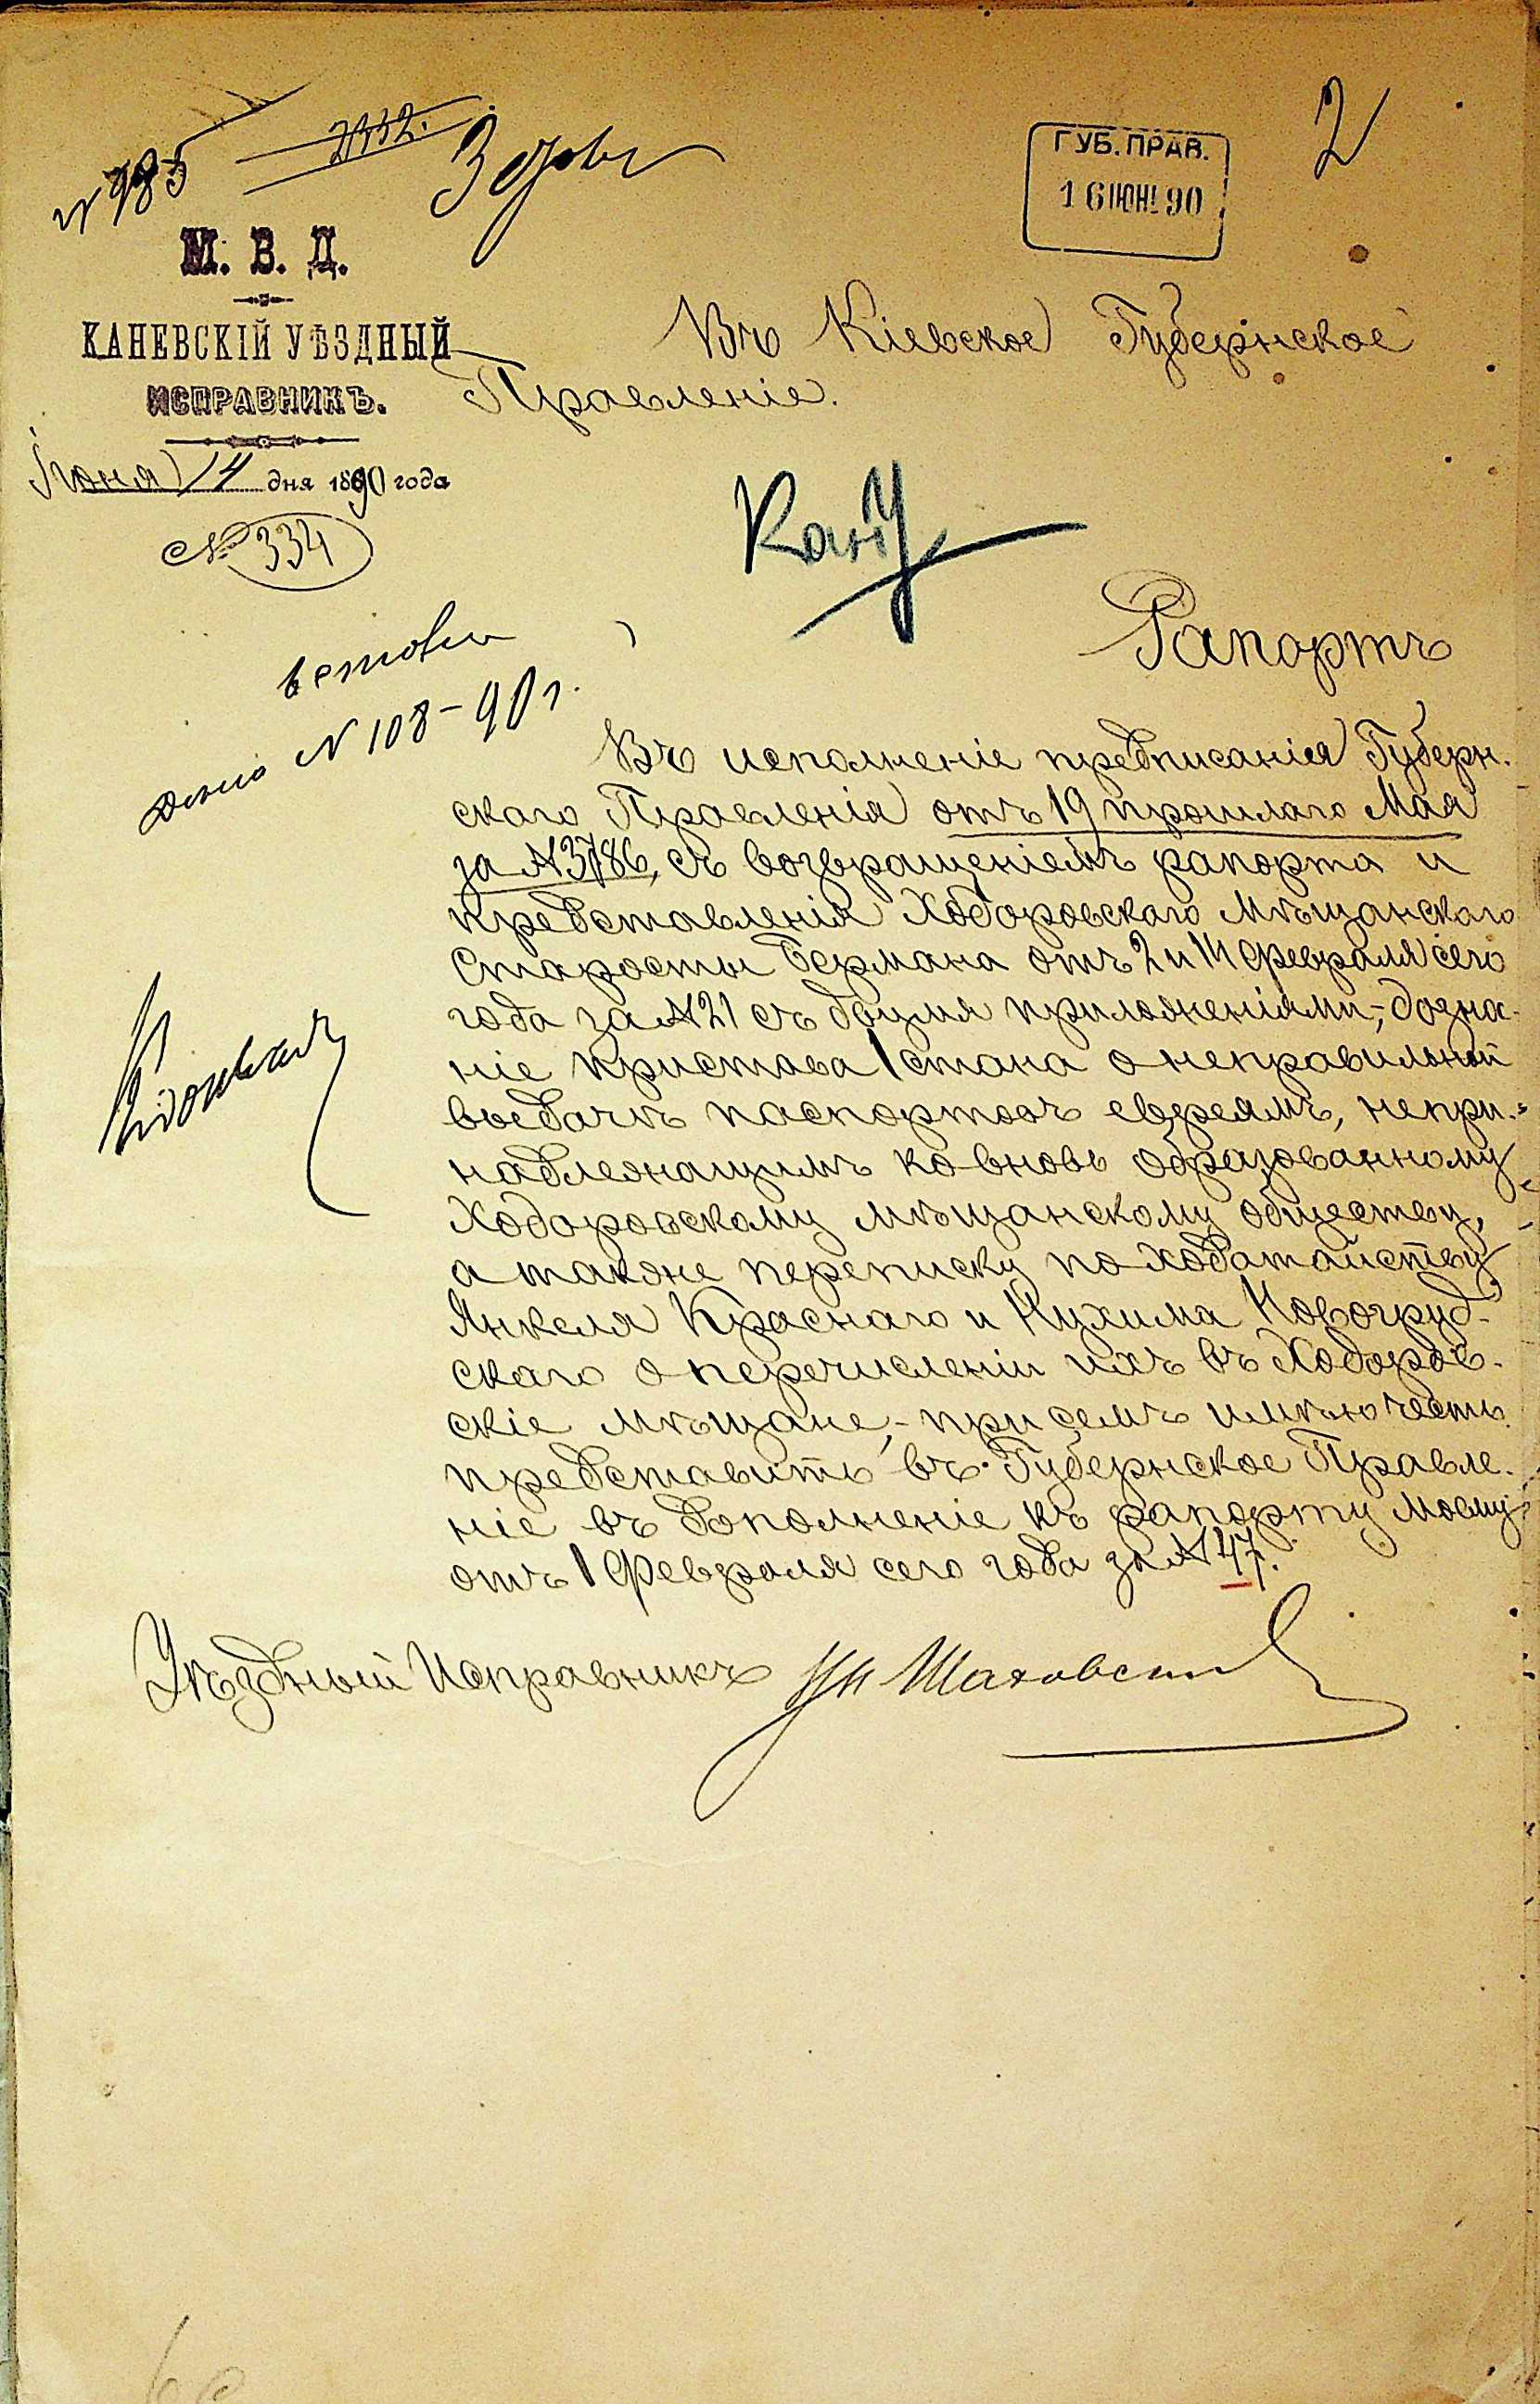 2
ГУБ. ПРАВ.
16 ІЮН. 90
№ 985
2332.
М. В. Д.
КАНЕВСКІЙ УѢЗДНЫЙ
ИСПРАВНИКЪ.
Іюня 14 дня 1890 года
№ 334
Въ Кіевское Губернское
Правленіе.
КанУ
Рапортъ
№ 108-90 г.
Въ исполненіе предписанія Губерн.
скаго Правленія отъ 19 прошлаго Мая
за №3786, съ возвращеніемъ рапорта и
представленія Ходоровскаго мѣщанскаго
старосты Бермана отъ 2 и 14 февраля сего
года за №21 съ двумя приложеніями,- дозна-
ніе пристава 1 стана о неправильной
выдачѣ паспортовъ евреямъ, непри-
надлежащимъ ко вновь образованному
Ходоровскому мѣщанскому обществу,
а также переписку по ходатайству
Янкеля Краснаго и Нухима Новогруд-
скаго о перечисленіи ихъ въ Ходоров-
скіе мѣщане,- при семъ имѣю честь
представить въ Губернское Правле-
ніе въ дополненіе къ рапорту моему
отъ 1 февраля сего года за №47.
Уѣздный Исправникъ Шаховской